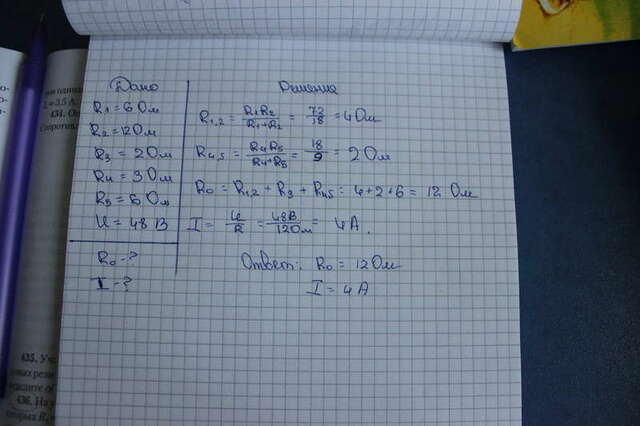 Дано
R1 = 6 Ом
R2 = 12 Ом
R3 = 2 Ом
R4 = 3 Ом
R5 = 6 Ом
U = 48 В
R0 - ?
I - ?
Решение
R1,2 = R1R2 / R1+R2 = 72/18 = 4 Ом
R4,5 = R4R5 / R4+R5 = 18/9 = 2 Ом
R0 = R1,2 + R3 + R4,5 = 4+2+6 = 12 Ом
I = U/R = 48В/12Ом = 4А.
Ответ: R0 = 12 Ом
I = 4А
434.
435.
436.